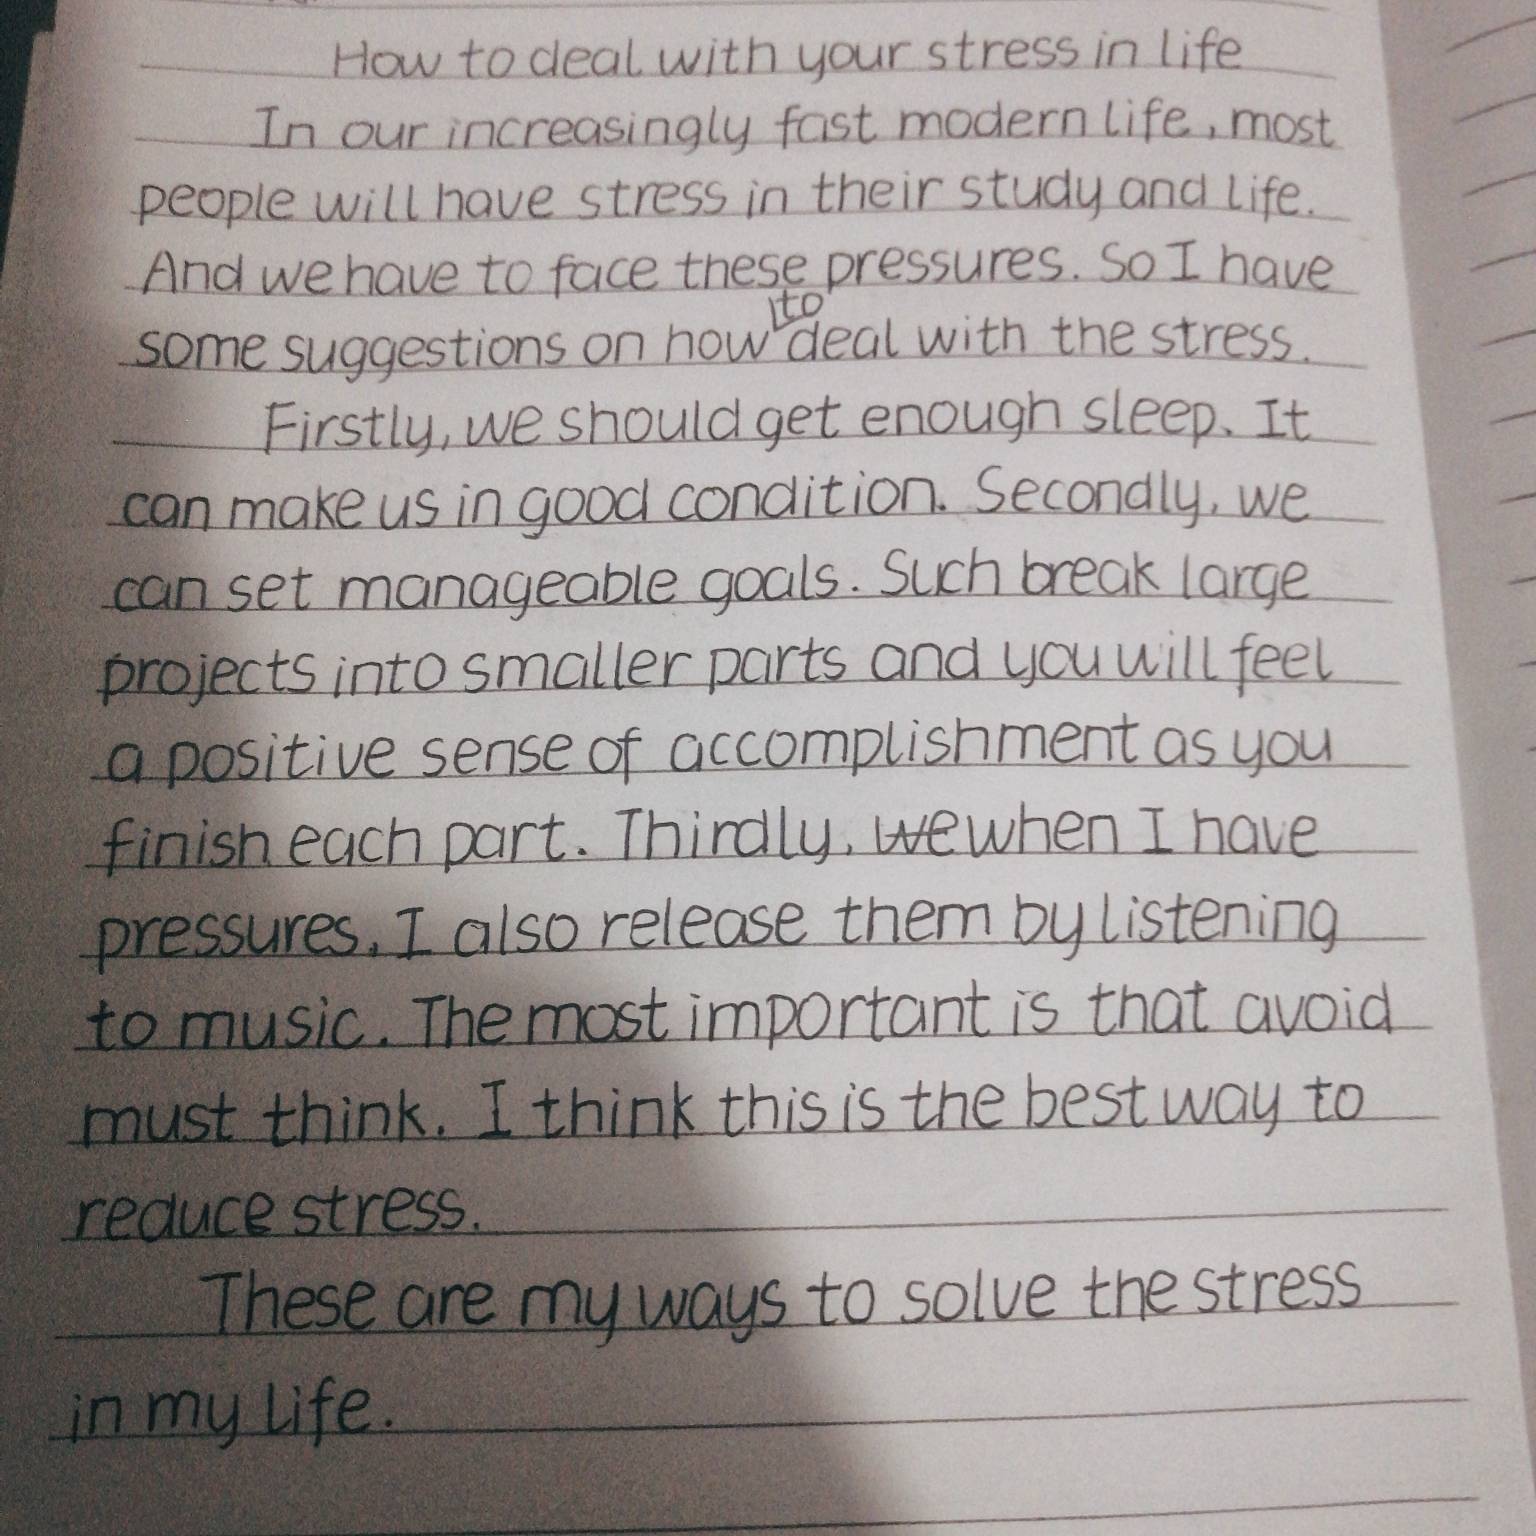 How to deal with your stress in life
In our increasingly fast modern life, most
people will have stress in their study and life.
And we have to face these pressures. So I have
some suggestions on how to deal with the stress.
Firstly, we should get enough sleep. It
can make us in good condition. Secondly, we
can set manageable goals. Such break large
projects into smaller parts and you will feel
a positive sense of accomplishment as you
finish each part. Thirdly, we when I have
pressures, I also release them by listening
to music. The most important is that avoid
must think. I think this is the best way to
reduce stress.
These are my ways to solve the stress
in my life.